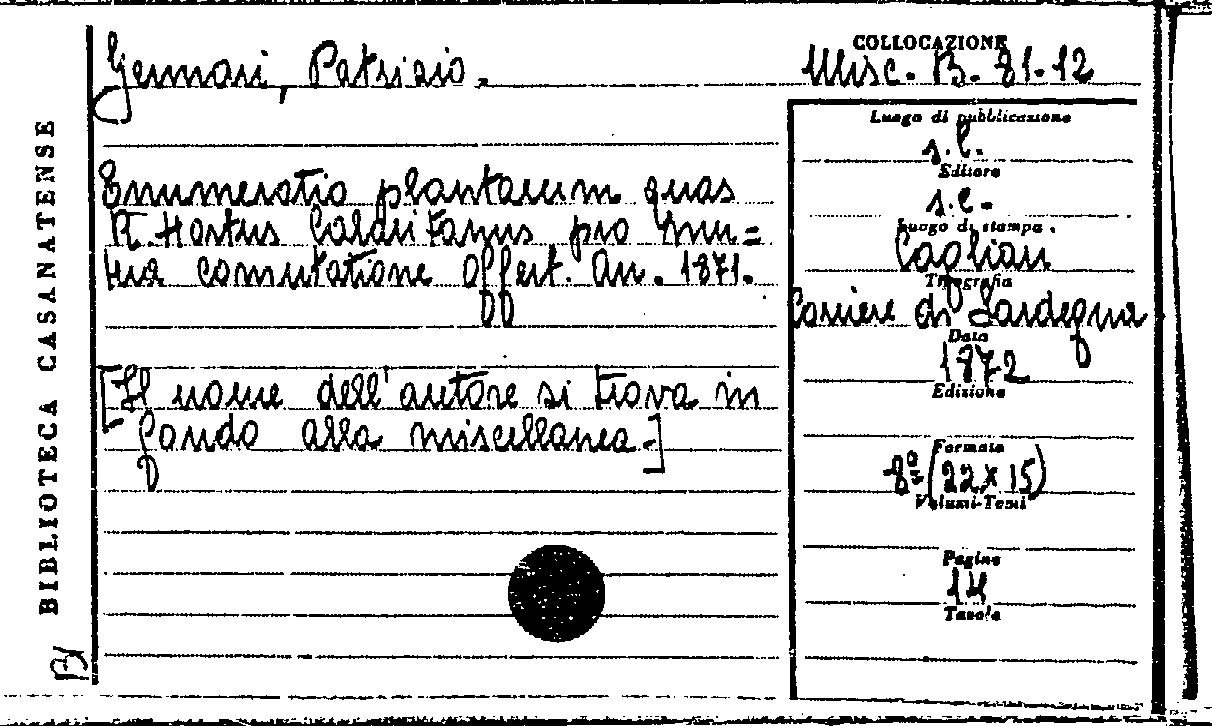 Gennari, Patrizio.
COLLOCAZIONE
Misc. B. 81.12
BIBLIOTECA CASANATENSE
B
Enumeratio plantarum quas
R. Hortus Calaritanus pro mu=
tua comutatione offert. An. 1871.
[Il nome dell'autore si trova in
fondo alla miscellanea.]
Luogo di pubblicazione
s.l.
Editore
s.e.
Luogo di stampa.
Cagliari
Tipografia
Corriere di Sardegna
Data
1872
Edizione
Formato
8º (22x15)
Volumi-Tomi
Pagine
14
Tavole